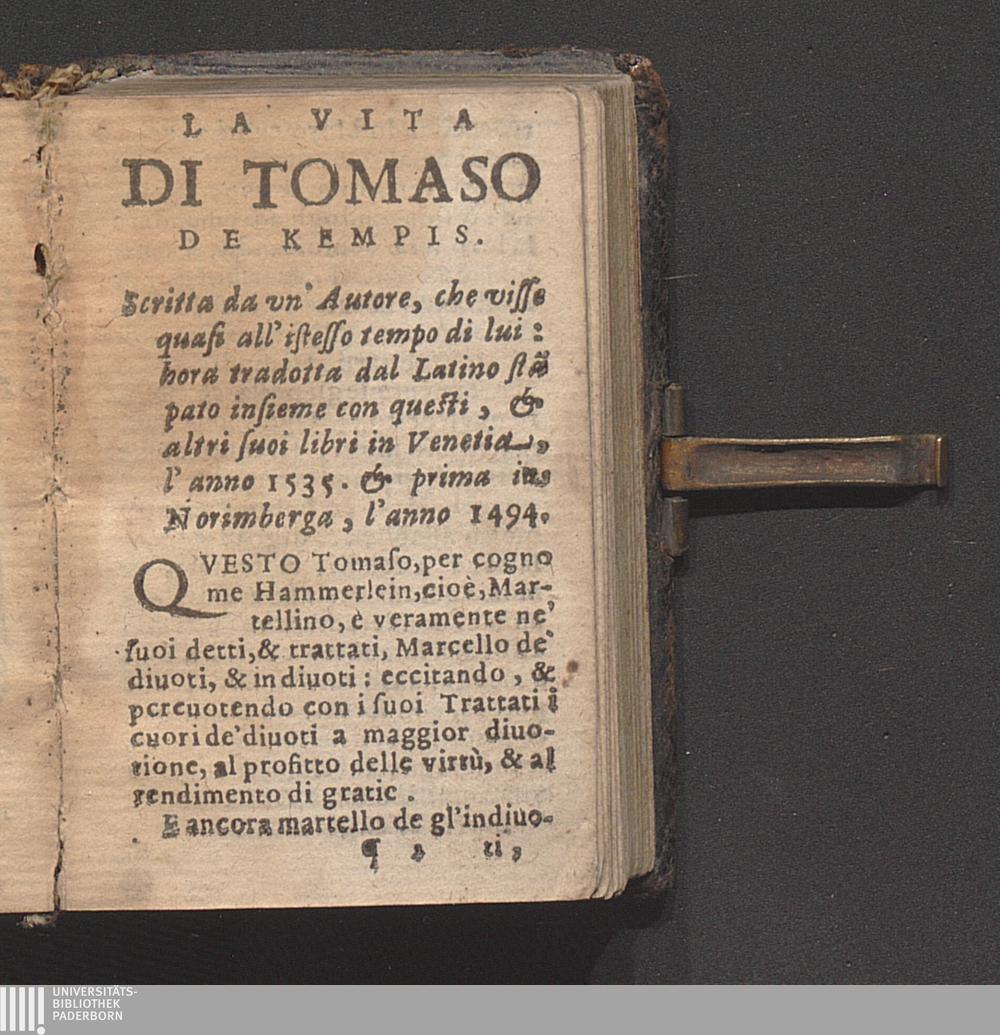 LA VITA
DI TOMASO
DE KEMPIS.
Scritta da vn' Autore, che viſſe
quaſi all'iſteſſo tempo di lui:
hora tradotta dal Latino ſtã
pato inſieme con queſti, &
altri ſuoi libri in Venetia,
l'anno 1535. & prima in
Norimberga, l'anno 1494.
QVESTO Tomaſo, per cogno
me Hammerlein, cioè, Mar-
tellino, è veramente ne'
ſuoi detti, & trattati, Marcello de'
diuoti, & indiuoti: eccitando, &
percuotendo con i ſuoi Trattati i
cuori de'diuoti a maggior diuo-
tione, al profitto delle virtù, & al
rendimento di gratie.
E ancora martello de gl'indiuo-
q 2 ti,
UNIVERSITÄTS-
BIBLIOTHEK
PADERBORN